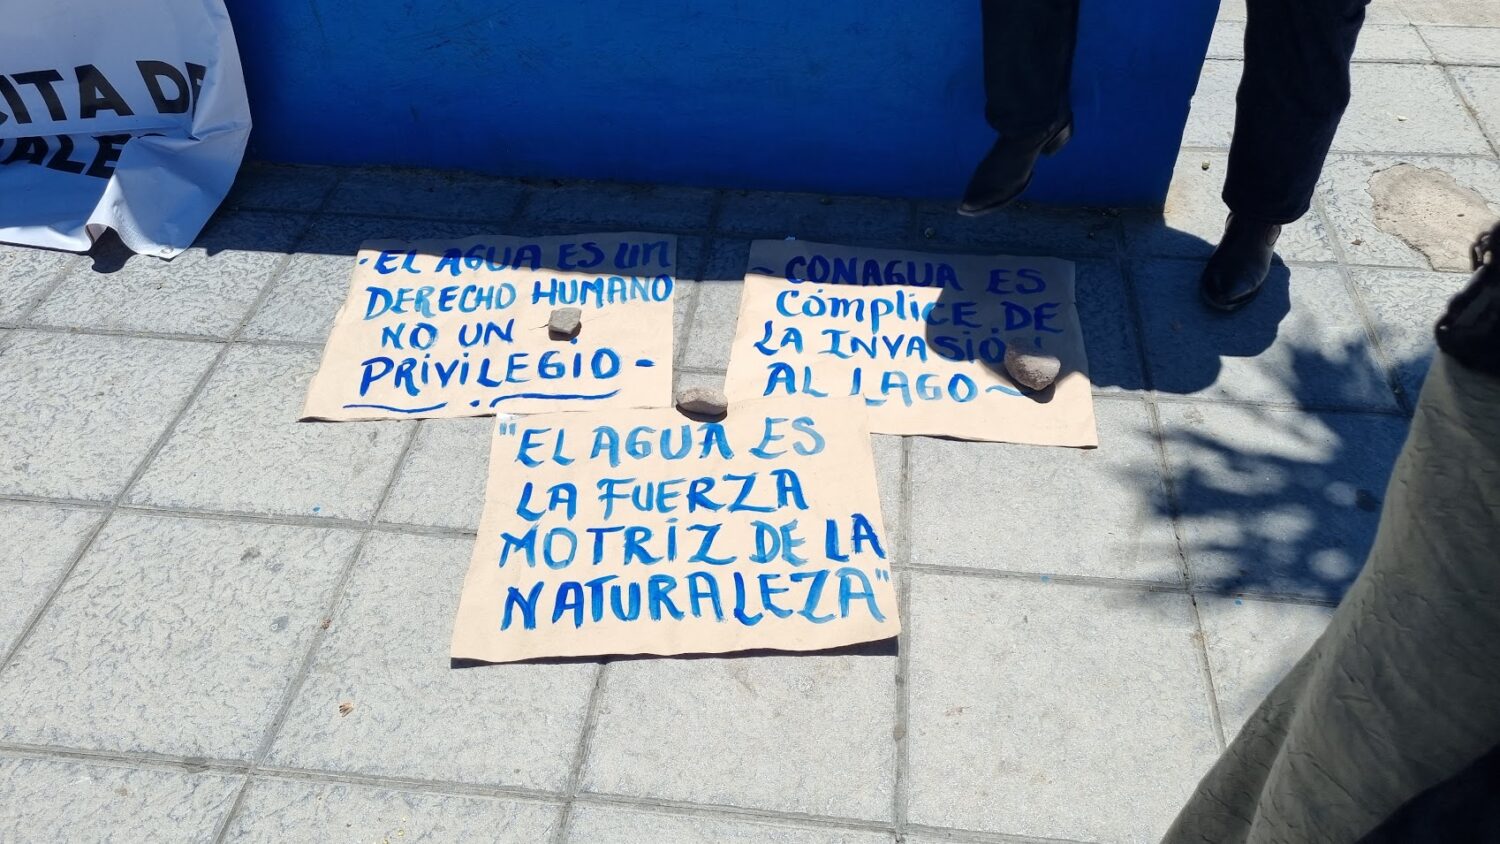 CITA DE
ALES
·EL AGUA ES UN
DERECHO HUMANO
NO UN
PRIVILEGIO-
- CONAGUA ES
CÓMPLICE DE
LA INVASIÓN
AL LAGO~
"EL AGUA ES
LA FUERZA
MOTRÍZ DE LA
NATURALEZA"